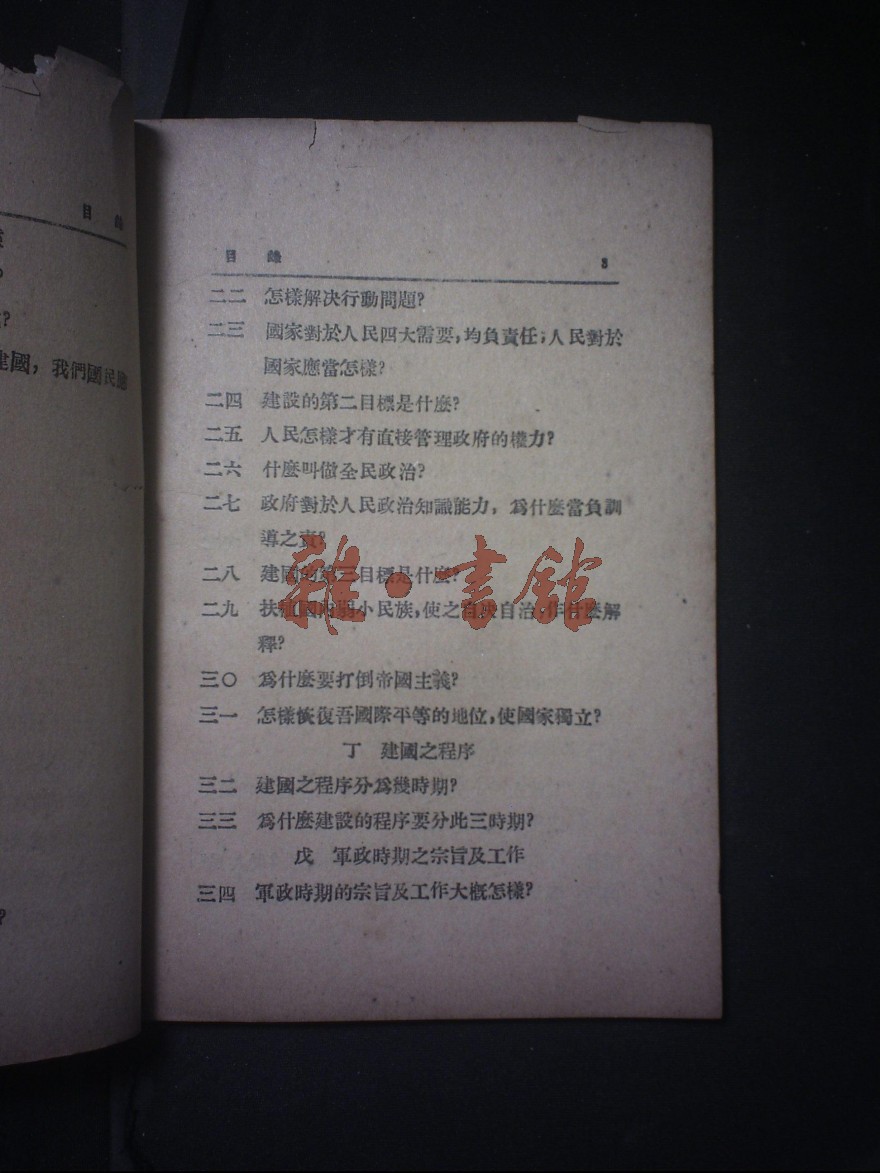 目錄
?
建國，我們國民
?
目錄 3
二二 怎樣解決行動問題?
二三 國家對於人民四大需要，均負責任；人民對於
國家應當怎樣?
二四 建設的第二目標是什麼?
二五 人民怎樣才有直接管理政府的權力?
二六 什麼叫做全民政治?
二七 政府對於人民政治知識能力，爲什麼當負訓
導之責?
二八 建國的第三目標是什麼?
二九 扶植國內弱小民族，使之自決自治，作什麼解
釋?
三〇 爲什麼要打倒帝國主義?
三一 怎樣恢復吾國際平等的地位，使國家獨立?
丁 建國之程序
三二 建國之程序分爲幾時期?
三三 爲什麼建設的程序要分此三時期?
戊 軍政時期之宗旨及工作
三四 軍政時期的宗旨及工作大概怎樣?
雜·書館